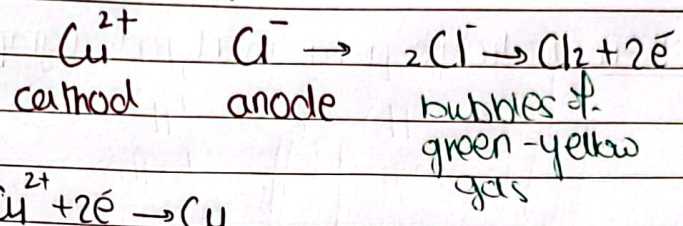 Cu²⁺ Cl⁻ → 2Cl⁻ → Cl₂ + 2e⁻
cathod anode bubbles of
green-yellow
gas
u²⁺ + 2e⁻ → Cu